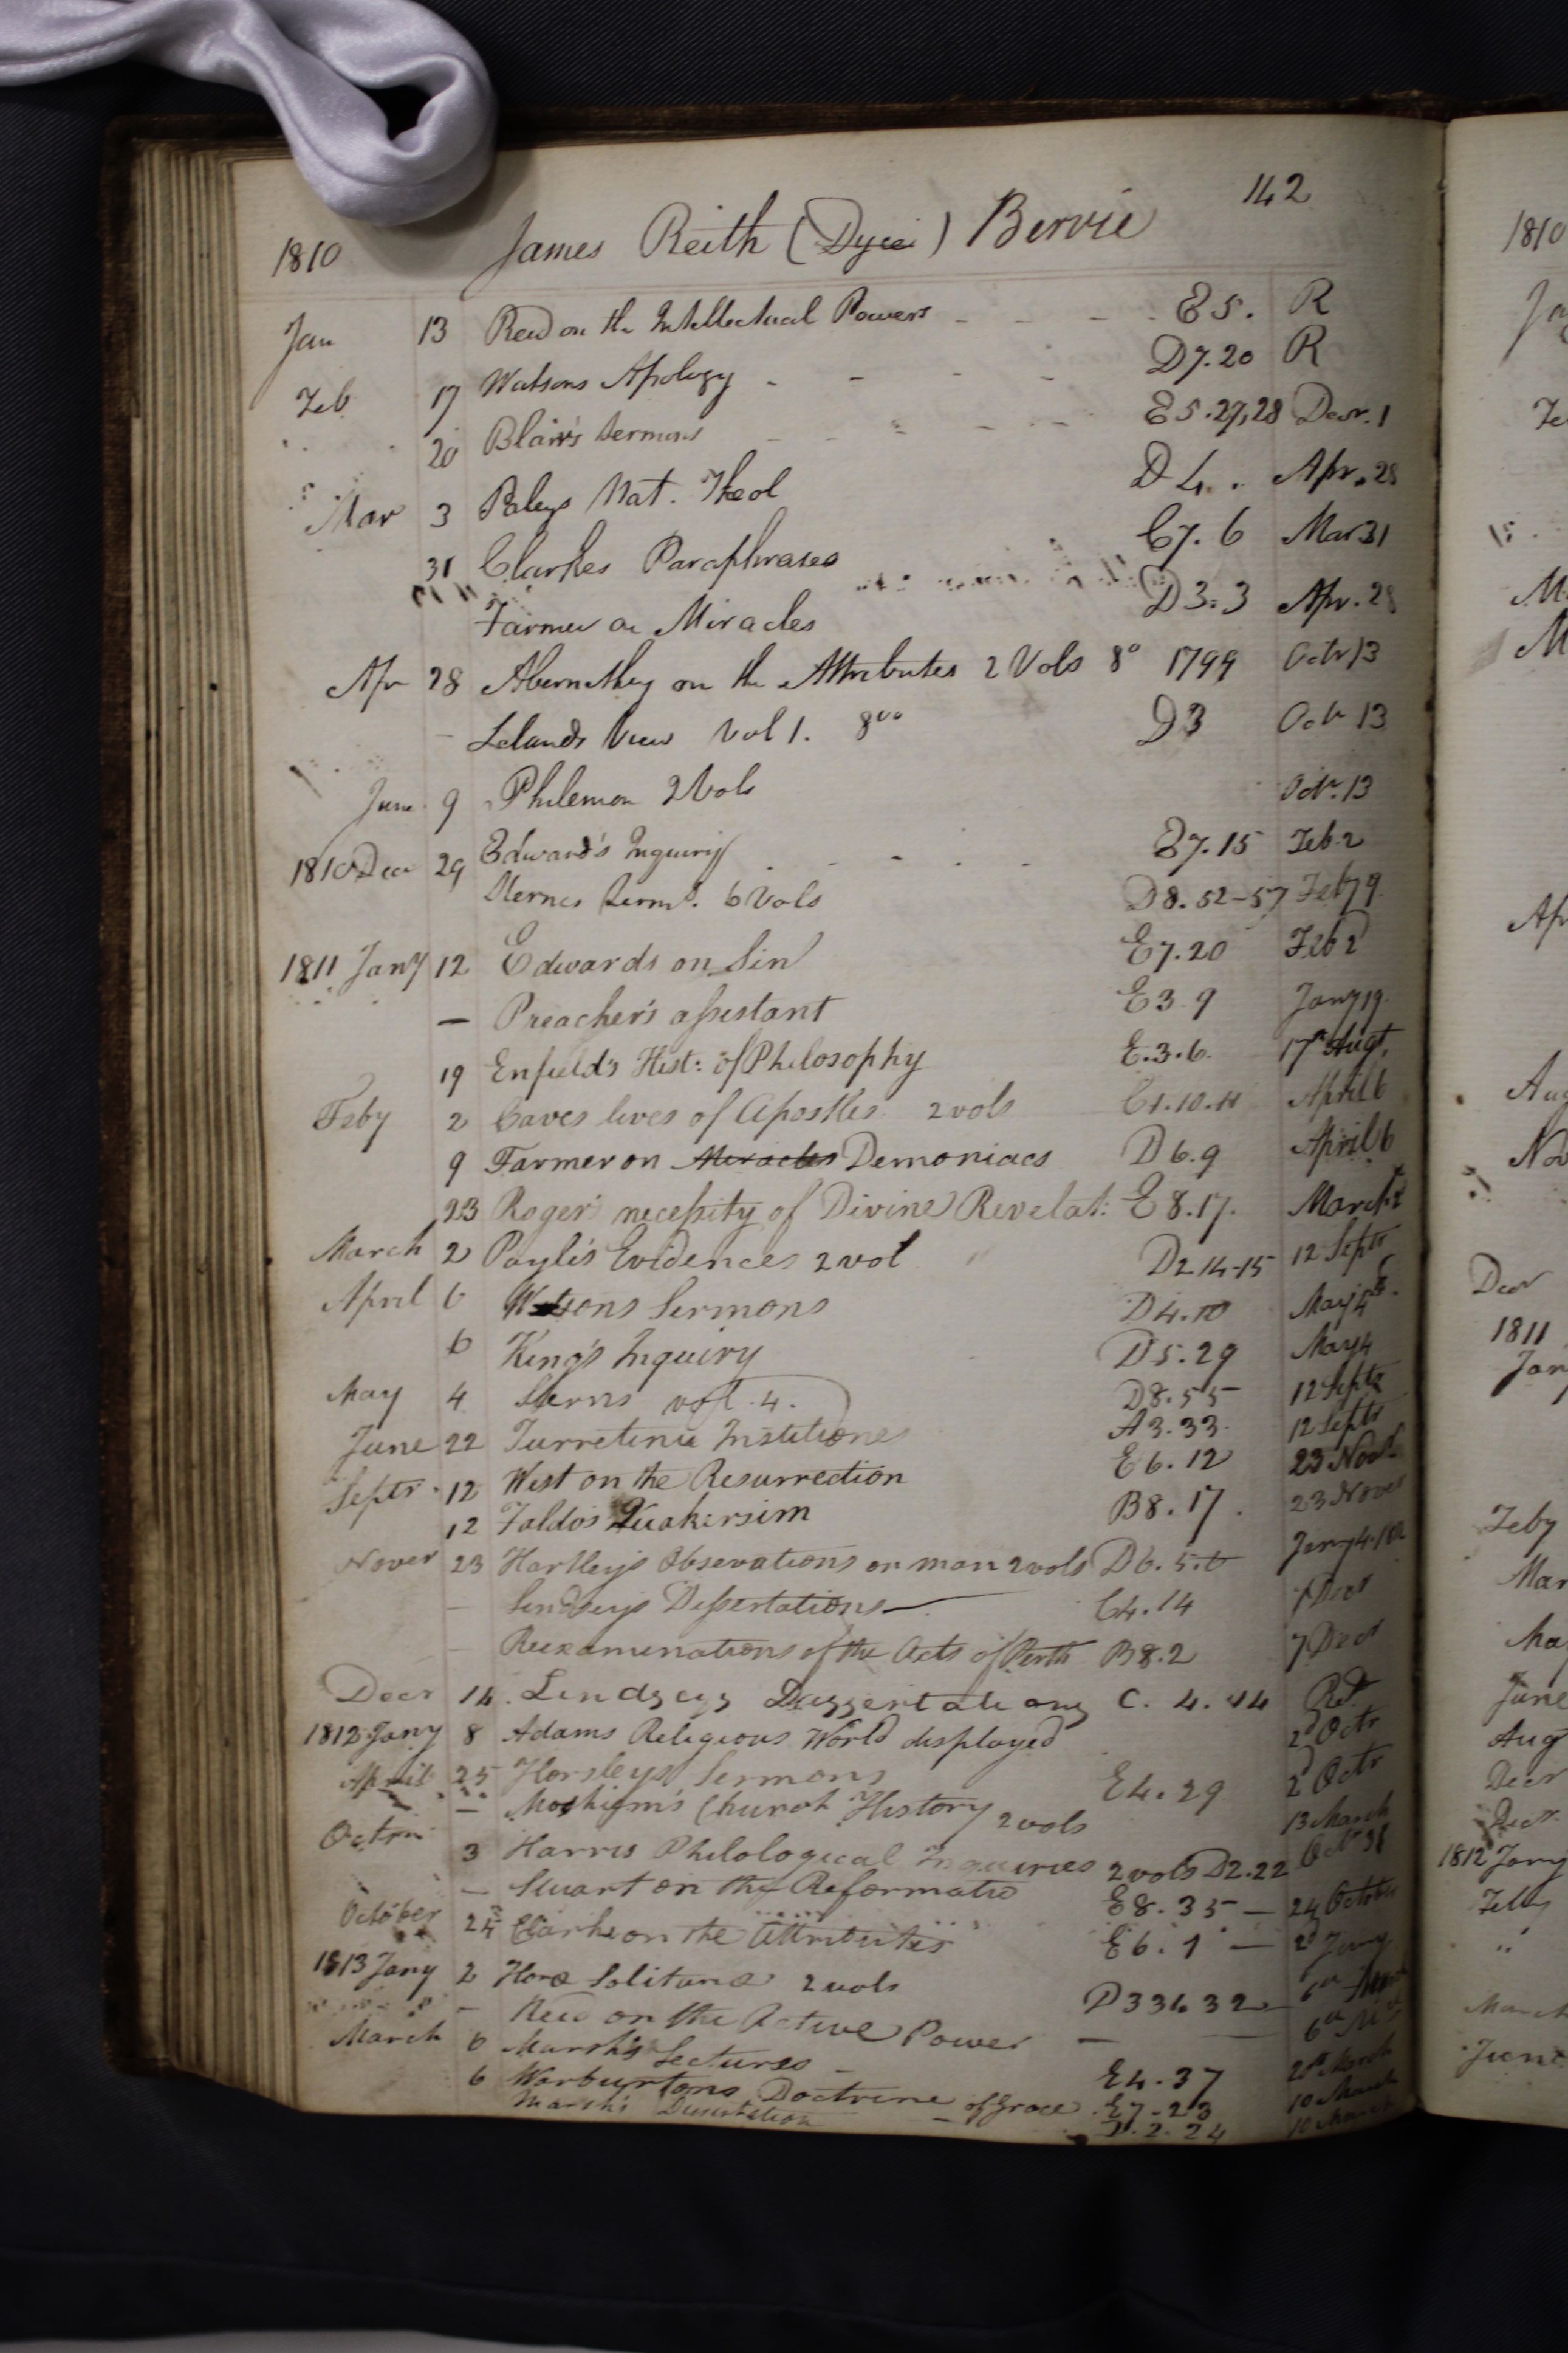 142
1810 James Reith (Dyce) Bervie
Jan 13 Reid on the Intellectual Powers - - - - E 5. R
Feb 17 Watsons Apology - - - - D7.20 R
20 Blair's Sermons - - - - E5.27,28 Decr. 1
Mar 3 Paleys Nat. Theol D4. Apr. 28
31 Clarkes Paraphrases C7.6 Mar 31
Farmer on Miracles D3.3 Apr. 28
Apr 28 Abernethy on the Attributes 2 Vols 8° 1799 Octr 13
- Lelands View Vol 1. 8vo D3 Octr 13
June 9 Philemon 2 Vols Octr. 13
1810 Decr 29 Edward's Inquiry - - - - E7.15 Feb 2
Sternes Serms. 6 Vols D8.52-57 Feby 9
1811 Jany 12 Edwards on Sin E7.20 Feb 2
- Preacher's assistant E3.9 Jany 19
19 Enfield's Hist: of Philosophy E.3.6. 17th Augt.
Feby 2 Caves lives of Apostles 2 vols C1.10.11 April 6
9 Farmer on Miracles Demoniacs D6.9 April 6
23 Roger's necessity of Divine Revelat: E8.17. March 2
March 2 Payli's Evidences 2 vol D2 14-15 12 Septr
April 6 Watsons Sermons D4.10 May 4th
6 King's Inquiry D5.29 May 4
May 4 Sterns vol. 4. D8.55 12 Septr
June 22 Turretinis Institutiones A3.33. 12 Septr
Septr 12 West on the Resurrection E6.12 23 Novr
12 Faldo's Quakersim B8.17. 23 Nover
Nover 23 Hartley's Obsevations on man 2 vols D6.5.6 Jany 4
- Lindseys Dissertations C4.14 7 Decr
- Reexaminations of the Acts of Perth B8.2 7 Decr
Decr 14. Lindseys C. 4. 14 Ret
1812 Jany 8 Adams Religious World displayed 2d Octr
April 25 Horsleys Sermons E4.29 2 Octr
- Moshiem's Church History 2 vols 13 March
Octr 3 Harris Philological Inquiries 2 vols D2.22
- Stuart on the Reformatio E8.35 - 24 October
October 24 Clarke on the Attributes E6.1 - 2d Jany
1813 Jany 2 Horæ Solitaræ 2 vols D33 & 32
- Reid on the Active Power - -
March 6 Marsh's Lectures - E4.37 March
6 Warburtons Doctrine of Grace E7-23 10 March
Marsh's Dissertation - 2.24 10 March
1810
1811
1812 Jany
Feby
June
Augt
Decr